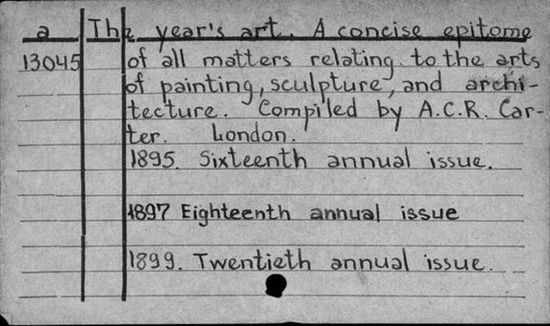 a The year's art. A concise epitome
13045 of all matters relating to the arts
of painting, sculpture, and archi-
tecture. Compiled by A.C.R. Car-
ter. London.
1895. Sixteenth annual issue.
1897 Eighteenth annual issue
1899. Twentieth annual issue.